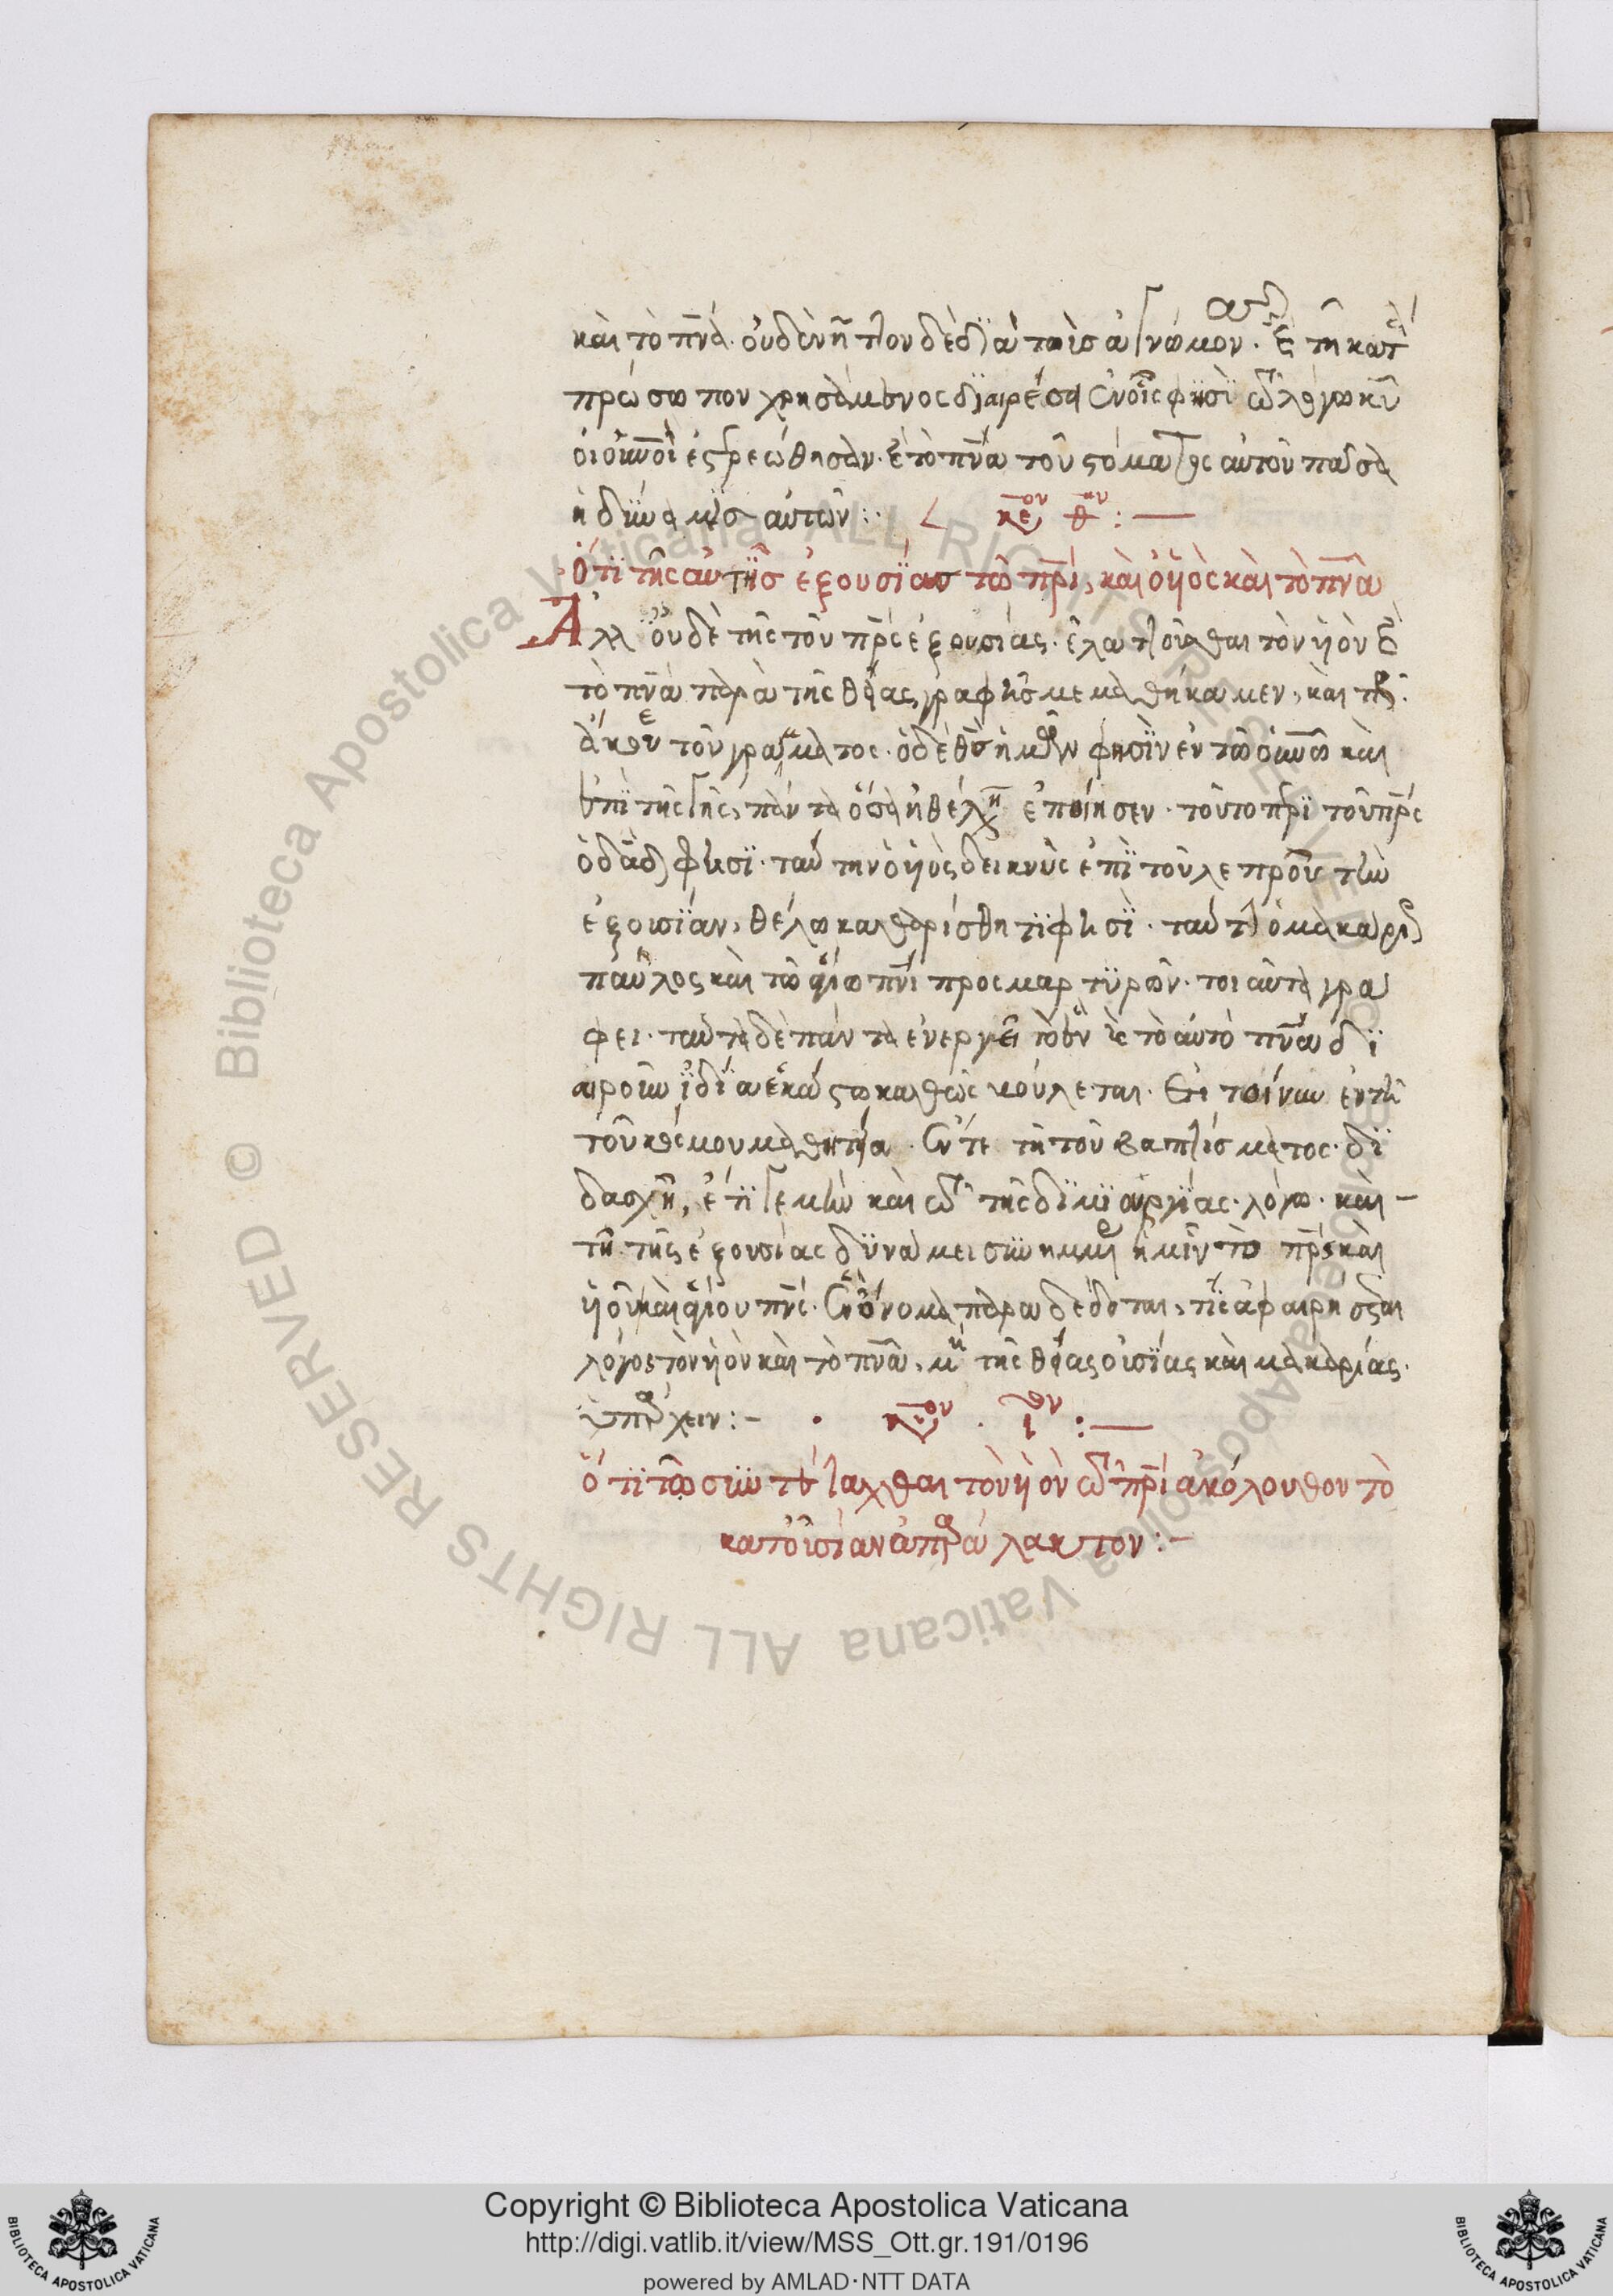 καὶ τὸ πνα. οὐδὲν ἧττον δὲ Δαυὶδ ταῖς
πρώσωπον χρησάμενος διαιρέσει ἐν οἷς φησὶ τῶ λόγω κυ
οἱ οὐνοὶ ἐστρεώθησαν. καὶ τὸ πνα τοῦ στόματος αὐτοῦ πᾶσα
ἡ δύναμις αὐτῶν :·  κεον θον : —
Ὅτι τῆς αὐτῆς ἐξουσίας τῶ πρὶ, καὶ ὁ ὑιὸς καὶ τὸ πνα
Ἀλλ οὐδὲ τῆς τοῦ πρς ἐξουσίας. ἐλαττοῦσθαι τὸν ὑιὸν καὶ
τὸ πνα παρὰ τῆς θείας γραφῆς μεμαθήκαμεν, καὶ
ἄκουε τοῦ γράμματος. ὁ δὲ θς ἡμῶν φησὶν ἐν τῶ οὐνῶ καὶ
ἐπὶ τῆς γῆς, πάντα ὅσα ἠθέλησεν ἐποίησεν. τοῦτο πρὶ τοῦ πρς
ὁ δαδ φησί. ταύτην ὁ ὑιὸς δεικνὺς ἐπὶ τοῦ λεπροῦ τὴν
ἐξουσίαν, θέλω καθαρίσθητι φησί. ταύτην ὁ μακάριος
παῦλος καὶ τῶ ἁγίω πνι προσμαρτυρῶν. τοιαῦτα γρά
φει. ταῦτα δὲ πάντα ἐνεργεῖ τὸ ἓν καὶ τὸ αὐτὸ πνα δι
αιροῦν ἰδία ἑκάστω καθὼς βούλεται. Ἔτι τοίνυν ἐν τῆ
τοῦ κόσμου μαθητεία. ἔν τε τῆ τοῦ βαπτίσματος. δι
δασχῆ, ἔτι γε μὴν καὶ τῶ τῆς δημιουργίας. λόγω. καὶ -
τῆ τῆς ἐξουσίας δυνάμει συνημμένον ἡμῖν τὸ πρς καὶ
ὑιοῦ καὶ ἁγίου πνς. ὄνομα παραδέδοται, τίς ἀφαιρήσεται
λόγος τὸν ὑιὸν καὶ τὸ πνα, μὴ τῆς θείας οὐσίας καὶ μακαρίας.
ὑπάρχειν : - · κεον · ιον : —
ὅτι τῶ συντετάχθαι τὸν ὑιὸν τῶ πρὶ ἀκόλουθον τὸ
κατοὐσίαν ἀπαράλακτον : -
Copyright © Biblioteca Apostolica Vaticana
http://digi.vatlib.it/view/MSS_Ott.gr.191/0196
powered by AMLAD·NTT DATA
BIBLIOTECA APOSTOLICA VATICANA
BIBLIOTECA APOSTOLICA VATICANA
© Biblioteca Apostolica Vaticana ALL RIGHTS RESERVED
© Biblioteca Apostolica Vaticana ALL RIGHTS RESERVED